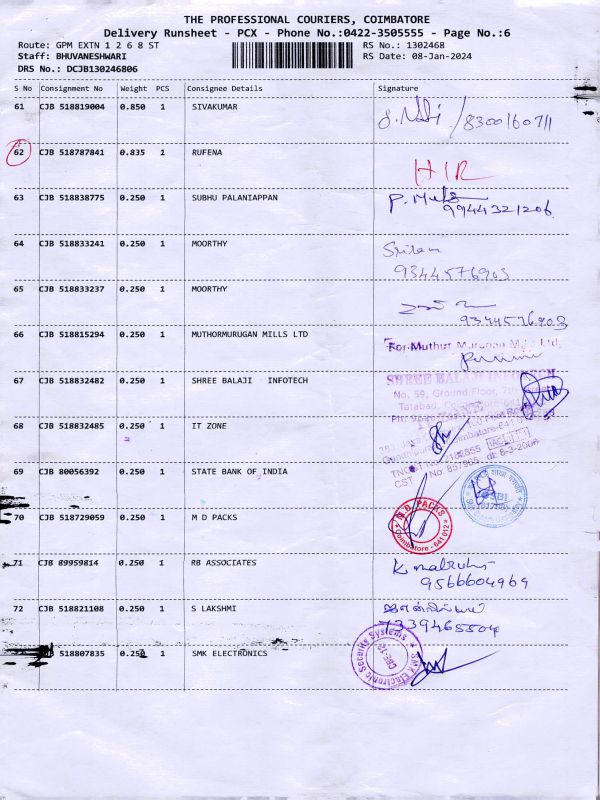 THE PROFESSIONAL COURIERS, COIMBATORE
Delivery Runsheet - PCX - Phone No.:0422-3505555 - Page No.:6
Route: GPM EXTN 1 2 6 8 ST RS No.: 1302468
Staff: BHUVANESHWARI RS Date: 08-Jan-2024
DRS No.: DCJB130246806
S No Consignment No Weight PCS Consignee Details Signature
61 CJB 518819004 0.850 1 SIVAKUMAR
62 CJB 518787841 0.835 1 RUFENA
63 CJB 518838775 0.250 1 SUBHU PALANIAPPAN
9944321206
64 CJB 518833241 0.250 1 MOORTHY
9344576903
65 CJB 518833237 0.250 1 MOORTHY
9344576903
66 CJB 518815294 0.250 1 MUTHORMURUGAN MILLS LTD For Muthur Murugan Mills Ltd,
67 CJB 518832482 0.250 1 SHREE BALAJI INFOTECH SHREE BALAJI INFOTECH
No. 59, Ground Floor, 7th
Tatabad,
68 CJB 518832485 0.250 1 IT ZONE
69 CJB 80056392 0.250 1 STATE BANK OF INDIA SBI
70 CJB 518729059 0.250 1 M D PACKS M.D. PACKS Coimbatore - 641 012
71 CJB 89959814 0.250 1 RB ASSOCIATES
9566604969
72 CJB 518821108 0.250 1 S LAKSHMI
7339465504
CJB 518807835 0.250 1 SMK ELECTRONICS SMX Electronic Security Systems CBE-12